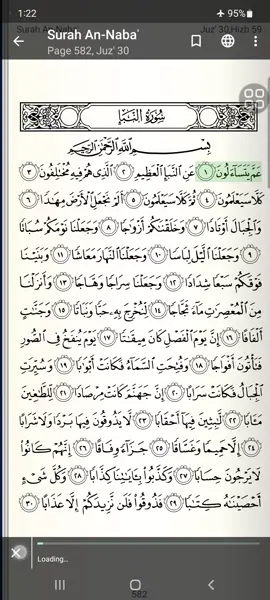 1:22 95%
Surah An-Naba' Juz' 30,Hizb 59
Surah An-Naba'
Page 582, Juz' 30
سُورَةُ النَّبَإِ
بِسْمِ اللَّهِ الرَّحْمَٰنِ الرَّحِيمِ
عَمَّ يَتَسَاءَلُونَ ١ عَنِ النَّبَإِ الْعَظِيمِ ٢ الَّذِي هُمْ فِيهِ مُخْتَلِفُونَ ٣
كَلَّا سَيَعْلَمُونَ ٤ ثُمَّ كَلَّا سَيَعْلَمُونَ ٥ أَلَمْ نَجْعَلِ الْأَرْضَ مِهَٰدًا ٦
وَالْجِبَالَ أَوْتَادًا ٧ وَخَلَقْنَٰكُمْ أَزْوَٰجًا ٨ وَجَعَلْنَا نَوْمَكُمْ سُبَاتًا
٩ وَجَعَلْنَا اللَّيْلَ لِبَاسًا ١٠ وَجَعَلْنَا النَّهَارَ مَعَاشًا ١١ وَبَنَيْنَا
فَوْقَكُمْ سَبْعًا شِدَادًا ١٢ وَجَعَلْنَا سِرَاجًا وَهَّاجًا ١٣ وَأَنزَلْنَا
مِنَ الْمُعْصِرَٰتِ مَاءً ثَجَّاجًا ١٤ لِّنُخْرِجَ بِهِ حَبًّا وَنَبَاتًا ١٥ وَجَنَّٰتٍ
أَلْفَافًا ١٦ إِنَّ يَوْمَ الْفَصْلِ كَانَ مِيقَٰتًا ١٧ يَوْمَ يُنفَخُ فِي الصُّورِ
فَتَأْتُونَ أَفْوَاجًا ١٨ وَفُتِحَتِ السَّمَاءُ فَكَانَتْ أَبْوَٰبًا ١٩ وَسُيِّرَتِ
الْجِبَالُ فَكَانَتْ سَرَابًا ٢٠ إِنَّ جَهَنَّمَ كَانَتْ مِرْصَادًا ٢١ لِّلطَّٰغِينَ
مَـَٔابًا ٢٢ لَّٰبِثِينَ فِيهَا أَحْقَابًا ٢٣ لَّا يَذُوقُونَ فِيهَا بَرْدًا وَلَا شَرَابًا
٢٤ إِلَّا حَمِيمًا وَغَسَّاقًا ٢٥ جَزَاءً وِفَاقًا ٢٦ إِنَّهُمْ كَانُوا
لَا يَرْجُونَ حِسَابًا ٢٧ وَكَذَّبُوا بِـَٔايَٰتِنَا كِذَّابًا ٢٨ وَكُلَّ شَيْءٍ
أَحْصَيْنَٰهُ كِتَٰبًا ٢٩ فَذُوقُوا فَلَن نَّزِيدَكُمْ إِلَّا عَذَابًا ٣٠
Loading...
582